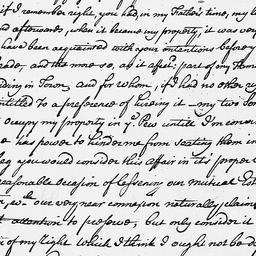 if I remember right, you had, in my Father's time, my l
nd afterwards, when it became my property, it was very
have been acquainted with your intentions before y
ade, and the more so, as it affect: part of my Fam
ding in Town, and for whom, if I had no other r
ntitled to a preference of hiring it — my two So
occupy my property in y.e Pew untill I'm convin
e has power to hinder me from seating them in
eg you would consider this affair in its proper l
reasonable occasion of lessening our mutual
w.ch our very near connexion naturally claim
attention to preserve, but only consider it
of my right which I think I ought not be d